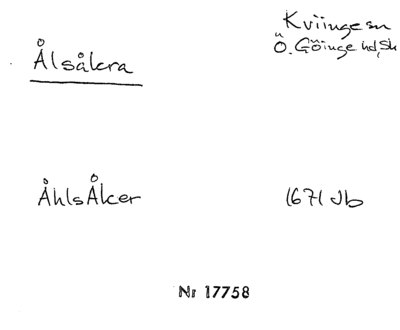 Kviinge sn
Ö. Göinge hd, Sk
Ålsåkra
ÅhlsÅker 1671 Jb
Nr 17758